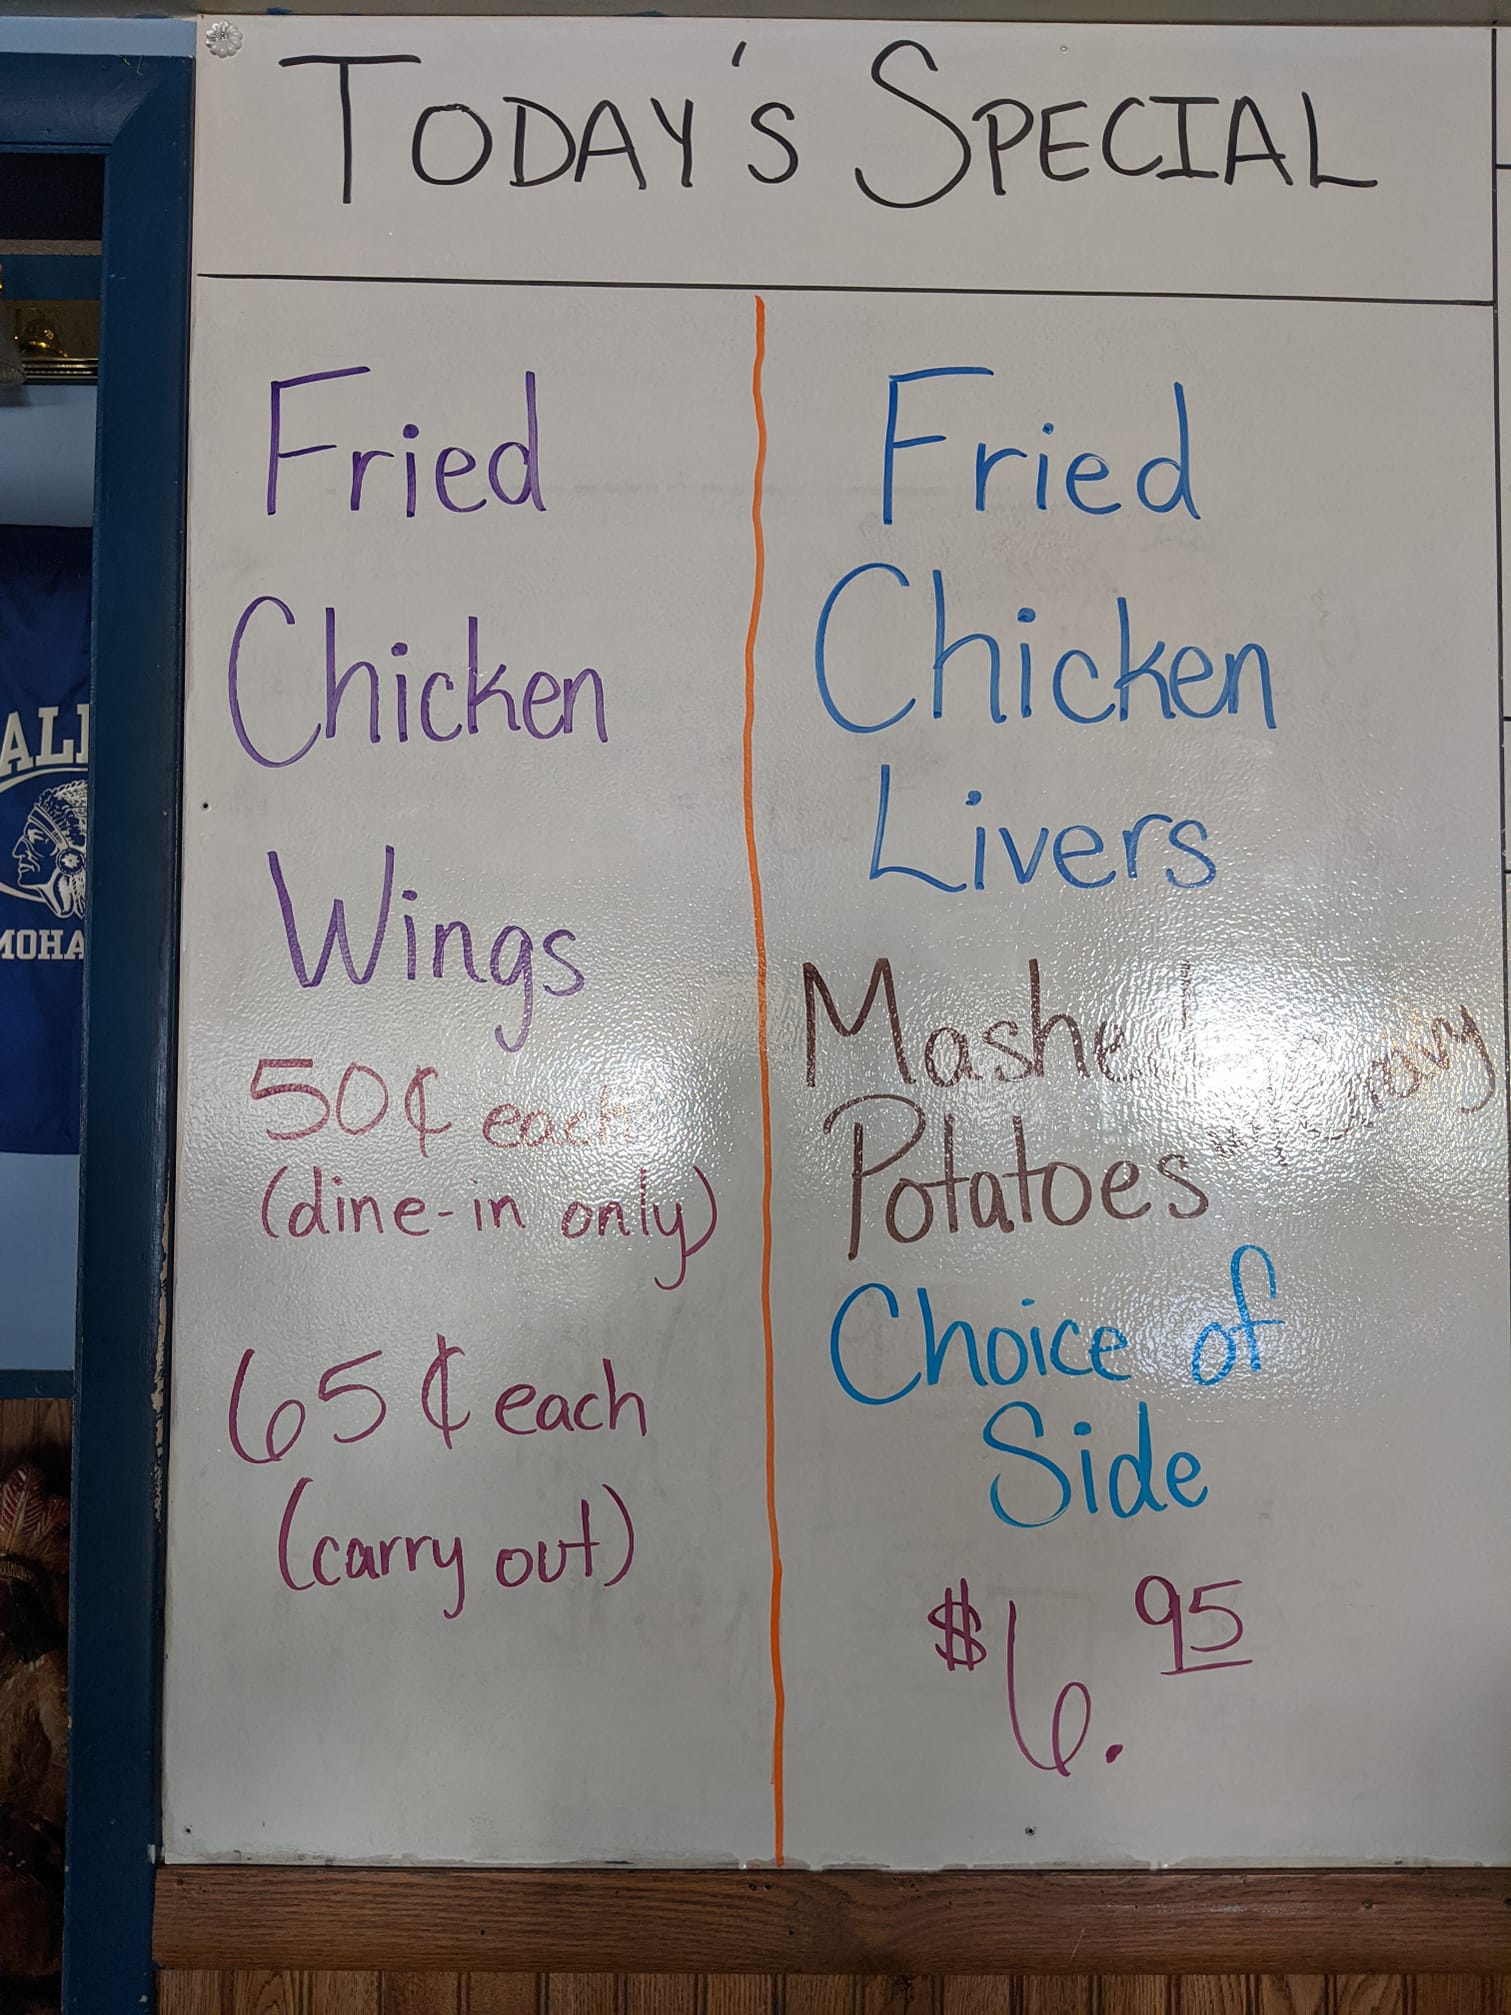 TODAY'S SPECIAL
Fried
Chicken
Wings
50¢ each
(dine-in only)
65¢ each
(carry out)
Fried
Chicken
Livers
Mashed
Potatoes
Choice of
Side
$6.95
MOHA